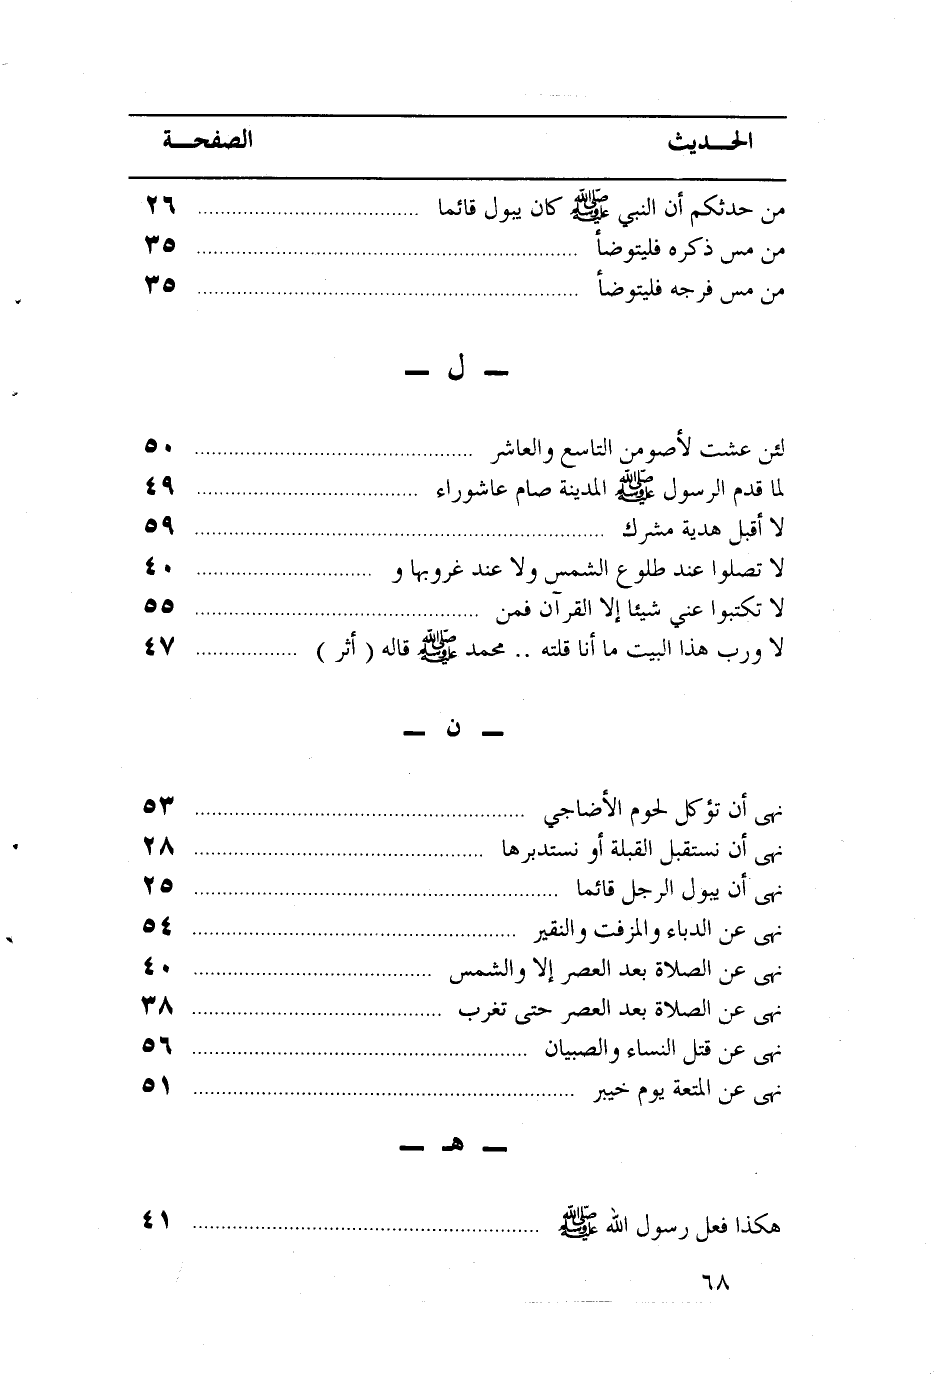 الحـــديث الصفحـــة
من حدثكم أن النبي ﷺ كان يبول قائما ........................................ ٢٦
من مس ذكره فليتوضأ ..................................................................... ٣٥
من مس فرجه فليتوضأ ..................................................................... ٣٥
ـ ل ـ
لئن عشت لأصومن التاسع والعاشر .................................................. ٥٠
لما قدم الرسول ﷺ المدينة صام عاشوراء ........................................ ٤٩
لا أقبل هدية مشرك .......................................................................... ٥٩
لا تصلوا عند طلوع الشمس ولا عند غروبها و ................................ ٤٠
لا تكتبوا عني شيئا إلا القرآن فمن ................................................... ٥٥
لا ورب هذا البيت ما أنا قلته .. محمد ﷺ قاله ( أثر ) .................. ٤٧
ـ ن ـ
نهى أن تؤكل لحوم الأضاحي ........................................................... ٥٣
نهى أن نستقبل القبلة أو نستدبرها .................................................... ٢٨
نهى أن يبول الرجل قائما .................................................................. ٢٥
نهى عن الدباء والمزفت والنقير .......................................................... ٥٤
نهى عن الصلاة بعد العصر إلا والشمس ........................................... ٤٠
نهى عن الصلاة بعد العصر حتى تغرب ............................................. ٣٨
نهى عن قتل النساء والصبيان ............................................................ ٥٦
نهى عن المتعة يوم خيبر ..................................................................... ٥١
ـ هـ ـ
هكذا فعل رسول الله ﷺ ............................................................... ٤١
٦٨